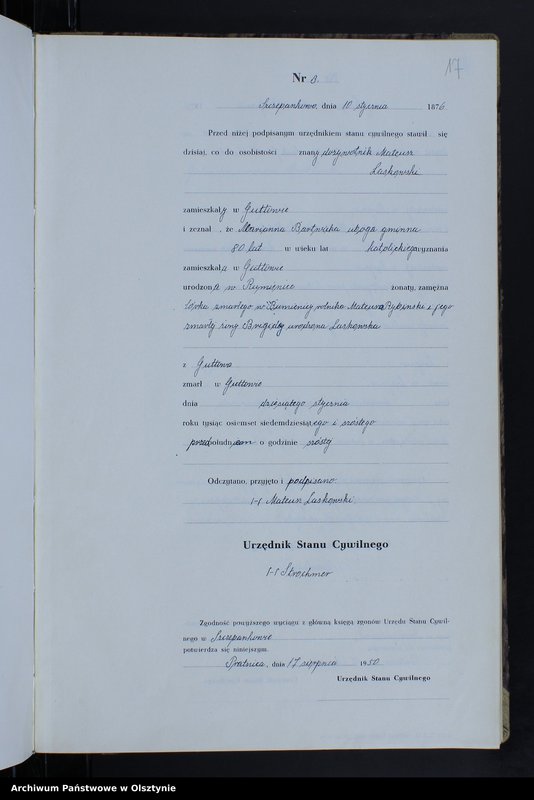 17
Nr 3.
Szczepankowo, dnia 10 stycznia 1876
Przed niżej podpisanym urzędnikiem stanu cywilnego stawił się
dzisiaj, co do osobistości znany dożywotnik Mateusz
Laskowski
zamieszkały w Guttowie
i zeznał, że Marianna uboga gminna
80 lat w wieku lat katolickiego wyznania
zamieszkała w Guttowie
urodzona w Rumienice zonaty, zamężna
córka zmarłego w rolnika Mateusza i jego
zmarłej żony Brigidy urodzona Laskowska
z Guttowa
zmarł w Guttowie
dnia dziesiątego stycznia
roku tysiąc osiemset siedemdziesiątego i szóstego
przedpołudniem o godzinie szóstej
Odczytano, przyjęto i podpisano
/-/ Mateusz Laskowski
Urzędnik Stanu Cywilnego
/-/
Zgodność powyższego wyciągu z główną księgą zgonów Urzędu Stanu Cywil-
nego w Szczepankowie
potwierdza się niniejszym.
Prątnica, dnia 17 sierpnia 1950
Urzędnik Stanu Cywilnego
Archiwum Państwowe w Olsztynie